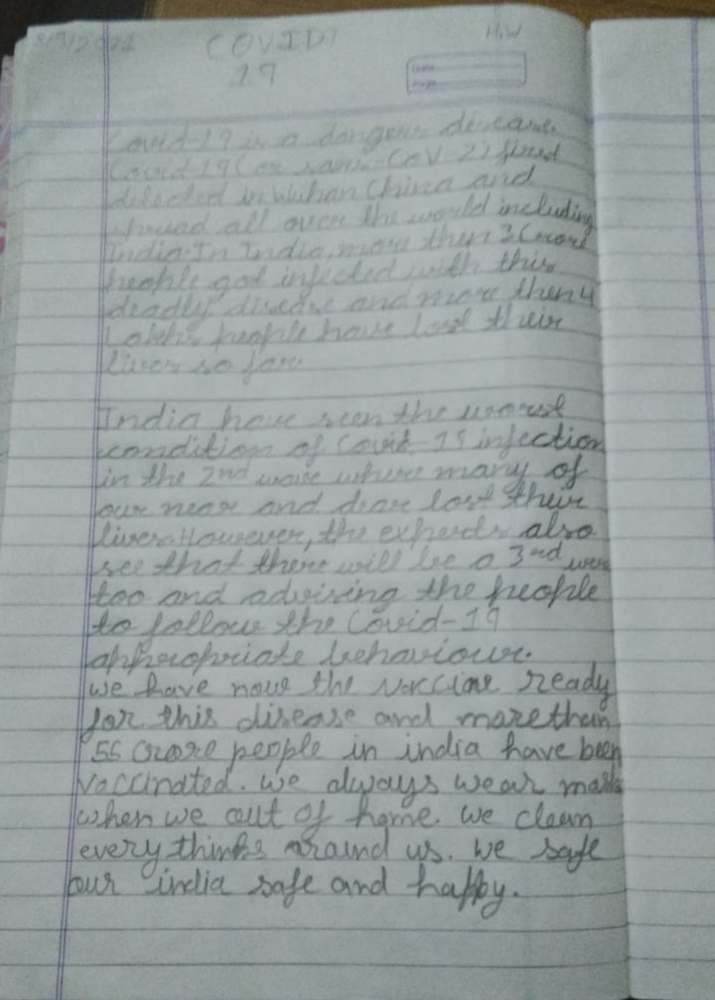 COVID
19
H.W
Covid-19 is a dangers disease
Covid 19 ( or sars-CoV-2) first
detected in Wuhan China and
spread all over the world including
India. In India, more then 3 Crore
people got infected with this
deadly disease and more then 4
Lakhs people have lost their
lives so far.
India have seen the worst
condition of Covid-19 infection
in the 2nd wave where many of
our near and dear lost their
lives. However, the experts also
see that there will be a 3rd
too and advising the people
to follow the Covid-19
appropriate behaviour.
we have now the vaccine ready
for this disease and more then
55 Crore people in india have been
vaccinated. we always wear mask
when we out of home. we clean
every things around us. we safe
our india safe and happy.